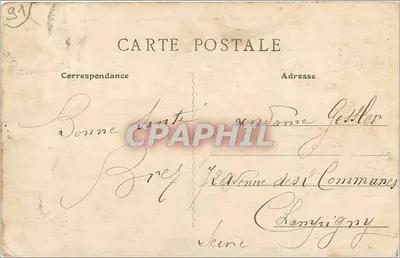 91
CARTE POSTALE
Correspondance
Adresse
Bonne Santé
Madame Gessler
CPAPHIL
Avenue des 2 Communes
Champigny
Seine